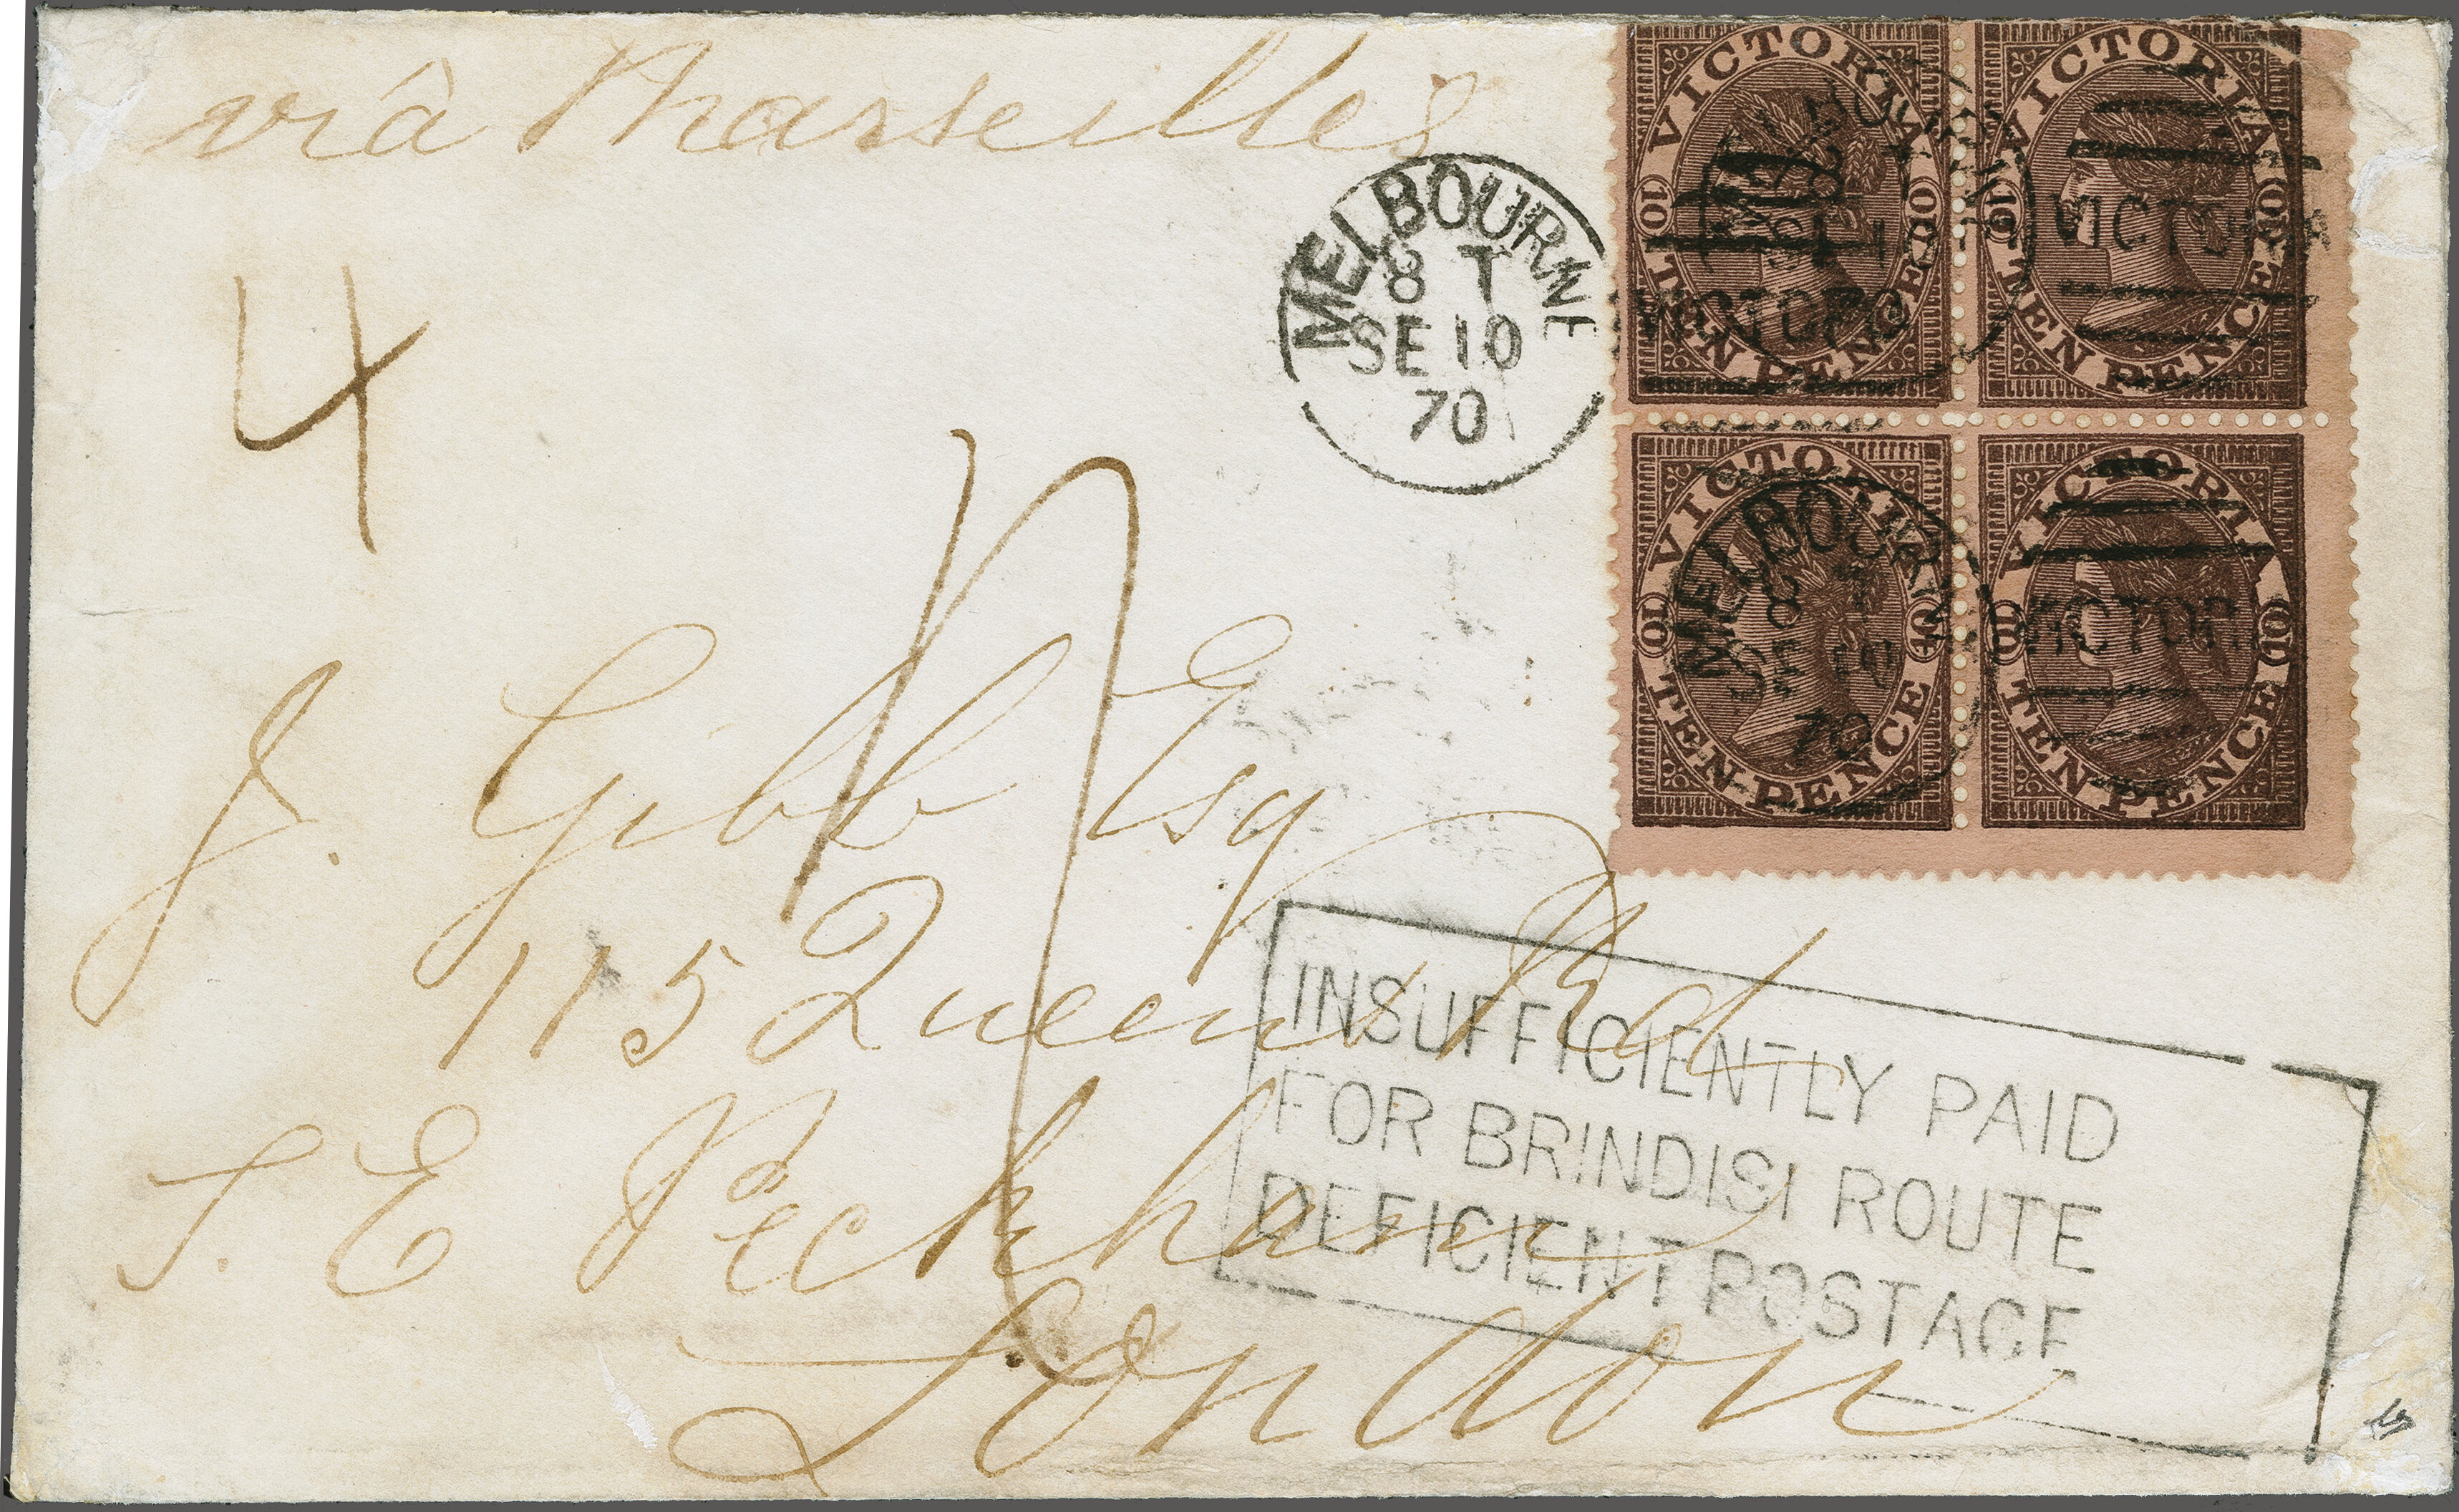 viâ Marseilles
MELBOURNE
8 T
SE 10
70
VICTORIA
10 10
TEN PENCE
VICTORIA
10 10
TEN PENCE
VICTORIA
VICTORIA
10 10
TEN PENCE
MELBOURNE
8 T
SE 10
70
VICTORIA
10 10
TEN PENCE
VICTORIA
4
J. Gibb Esq
115 Queens Rd
S. E Peckham
London
INSUFFICIENTLY PAID
FOR BRINDISI ROUTE
DEFICIENT POSTAGE